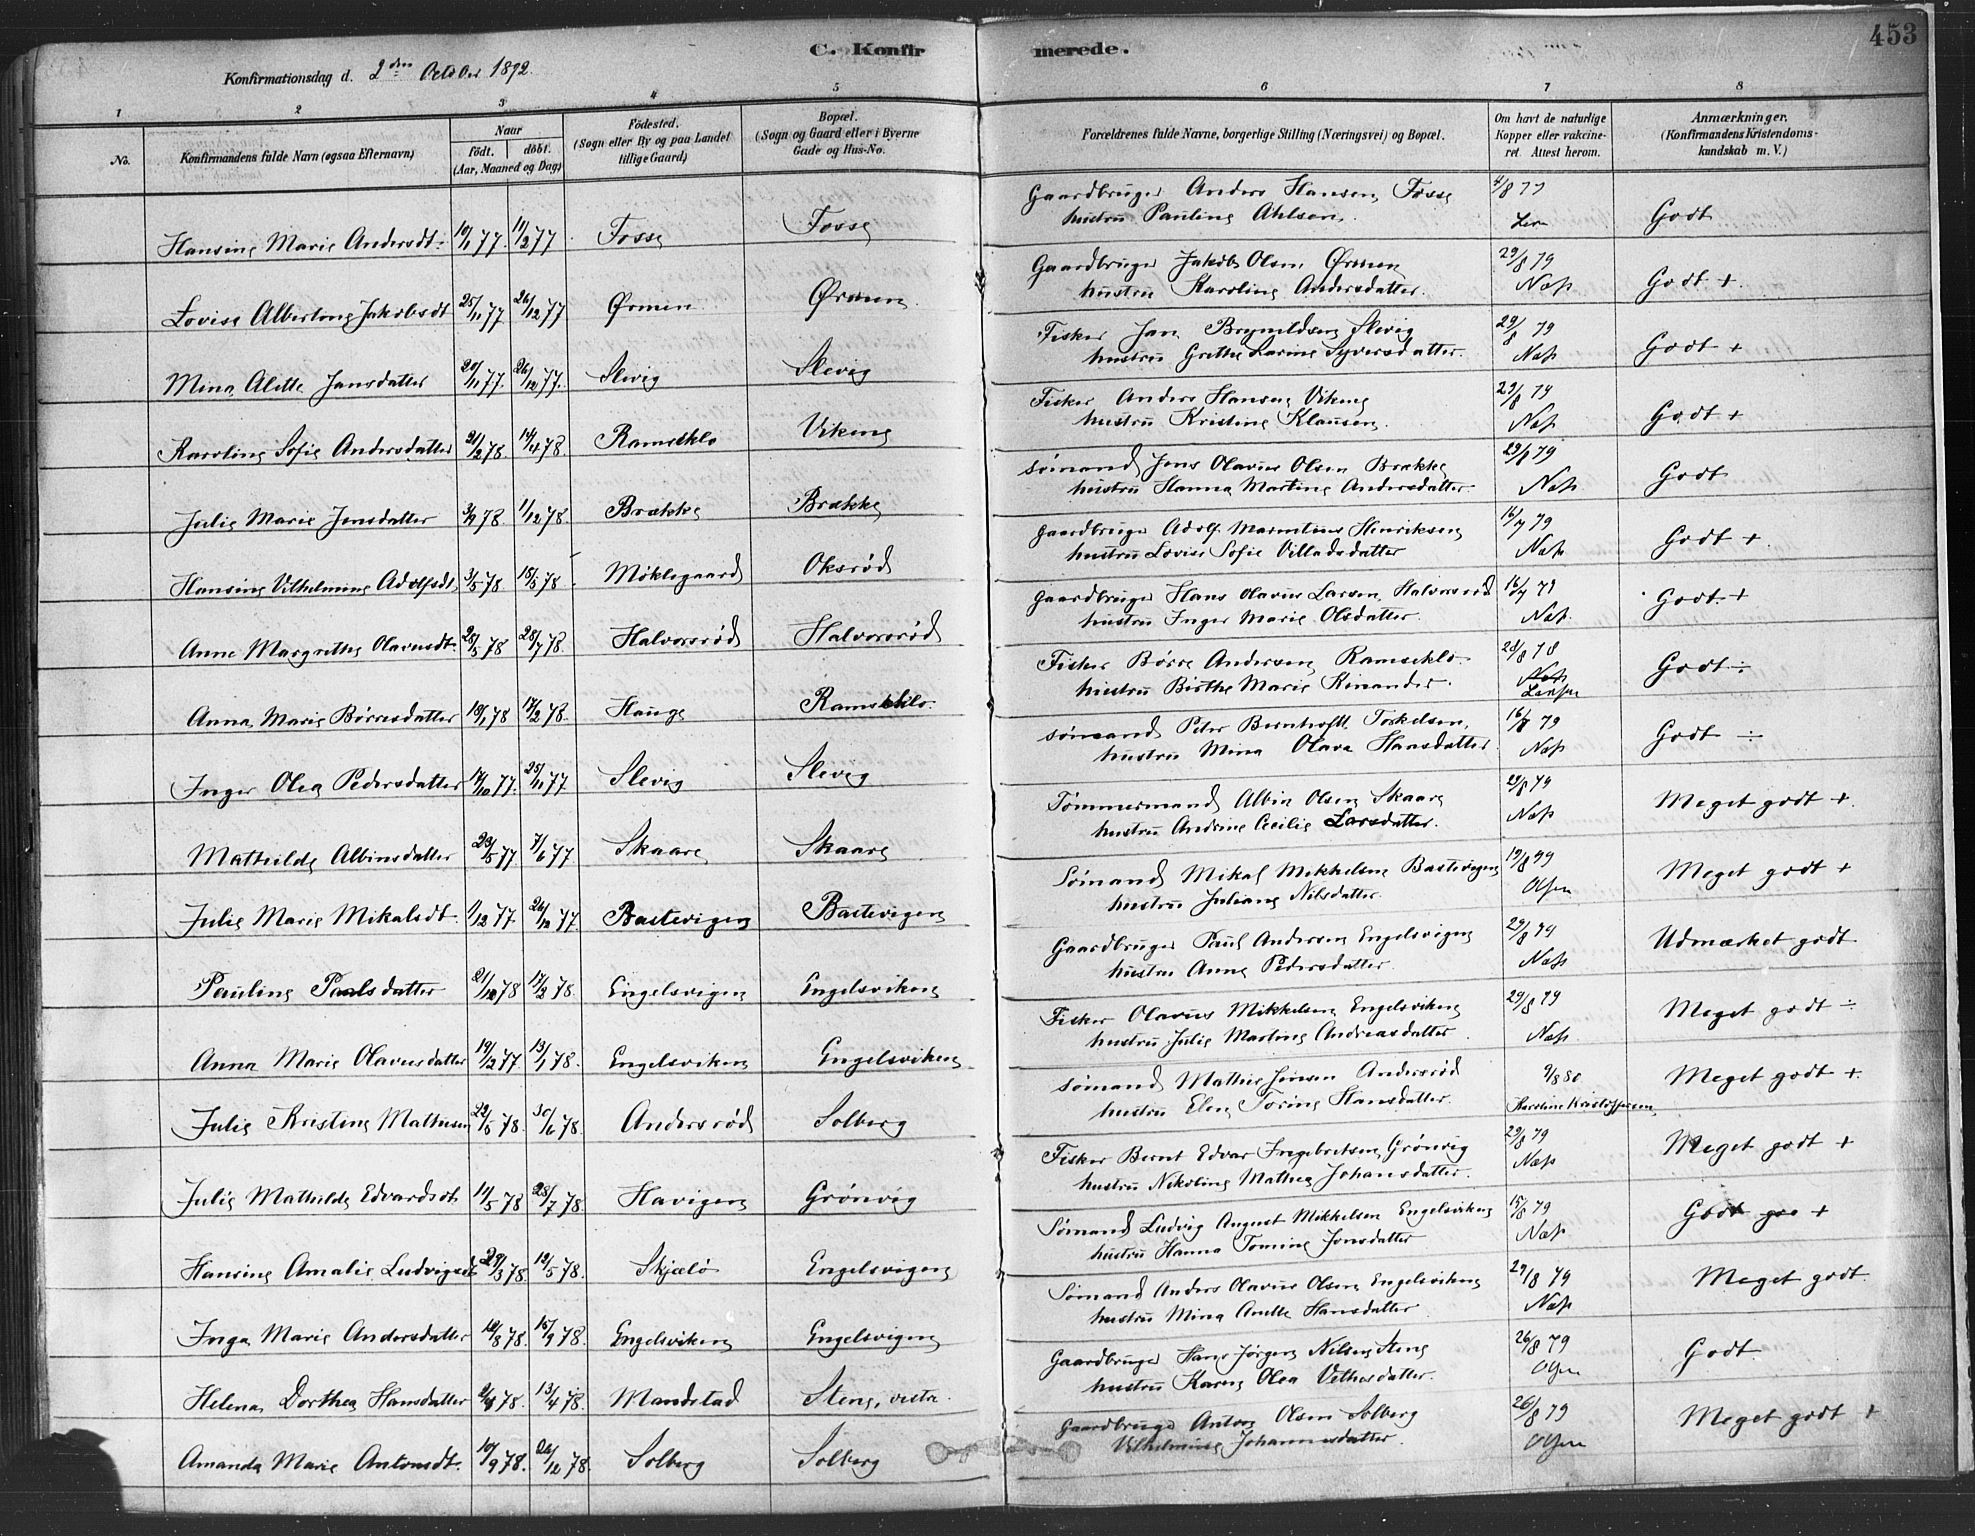 C. Konfirmerede.
453
Konfirmationsdag d. 2den October 1892.
1 2 3 4 5 6 7 8
No.
Konfirmandens fulde Navn (ogsaa Efternavn)
Naar
födt. döbt.
(Aar, Maaned og Dag)
Födested.
(Sogn eller By og paa Landet
tillige Gaard)
Bopæl.
(Sogn og Gaard eller i Byerne
Gade og Hus-No.
Forældrenes fulde Navne, borgerlige Stilling (Næringsvei) og Bopæl.
Om havt de naturlige
Kopper eller vakcine-
ret. Attest herom.
Anmærkninger.
(Konfirmandens Kristendoms-
kundskab m. V.)
Hansine Marie Andersdt. 10/1 77. 11/2 77 Fosse Fosse Gaardbruger Anders Hansen Fosse 4/8 79 Godt
hustru Pauline Ahlsen.
Lovise Albertine Jakobsdt 25/11 77 26/12 77 Ørmen Ørmen Gaardbruger Jakob Olsen Ørmen 29/8 79 Godt +
hustru Karoline Andersdatter. Næss
Mina Alette Jansdatter 20/11 77. 26/12 77. Slevig Slevig Fisker Jan Brynildsen Slevig 29/8 79 Godt +
hustru Grethe Larine Syversdatter. Næss
Karoline Sofie Andersdatter 21/2 78. 14/4 78. Ramseklo Vikene Fisker Anders Hansen Vikene 29/8 79 Godt +
hustru Kristine Klausen. Næss
Julie Marie Jensdatter 78. 1/12 78. Brække Brække Sømand Jens Olavius Olsen Brække 29/8 79 Godt
hustru Hanna Martine Andersdatter. Næss
Hansine Vilhelmine Adolfsdt. 3/5 78. 78. Møklegaard Oksrød Gaardbruger Adolf Henriksen 16/7 79 Godt +
hustru Lovise Sofie Villadsdatter Næss
Anne Margrethe Olavusdt. 28/5 78 28/7 78. Halvorsrød Halvorsrød Gaardbruger Hans Olavius Larsen Halvorsrød 16/7 79 Godt. +
hustru Inger Marie Olsdatter. Næss
Anna Marie Børresdatter 18/1 78 17/2 78. Hauge Ramseklo. Fisker Børre Andersen Ramseklo. 28/8 78 Godt ÷
hustru Birthe Marie Kinander.
Inger Olea Pedersdatter 14/10 77. 25/11 77. Slevig Slevig Sømand Peter Bernhoft Torkelsen, 79 Godt ÷
hustru Mina Olava Hansdatter. Næss
Mathilde Albinsdatter 23/5 77 7/6 77 Skaare Skaare Tømmermand Albin Olsen Skaare 29/8 79 Meget godt +
hustru Andrine Cecilie Larsdatter. Næss
Julie Marie Mikalsdt. 1/12 77 26/12 77. Bastevigen Bastevigen Sømand Mikal Mikkelsen Bastevigen 19/8 79 Meget godt +
hustru Juliane Nilsdatter.
Pauline Paulsdatter 78 17/2 78. Engelsvigen Engelsviken Gaardbruger Paul Andersen Engelsvigen 29/8 79 Udmærket godt
hustru Anne Pedersdatter. Næss
Anna Marie Olavusdatter 19/12 77. 13/1 78. Engelsviken Engelsviken Fisker Olavus Mikkelsen Engelsviken 29/8 79 Meget godt ÷
hustru Julie Martine Andreasdatter. Næss
Julie Kristine Mathisen 22/5 78. 30/6 78. Andersrød Solberg Sømand Mathis Jensen Andersrød 9/8 80 Meget godt +
hustru Elen Torine Hansdatter. Karoline Kristoffersen
Julie Mathilde Edvardsdt. 11/5 78 28/7 78. Havigen Grønvig Fisker Bernt Edvar Ingebretsen Grønvig 29/8 79 Meget godt +
hustru Nikoline Mathea Johansdatter. Næss
Hansine Amalie Ludvigsdt 29/3 78. 12/5 78. Skjælø Engelsvigen Sømand Ludvig August Mikkelsen Engelsviken 15/8 79 Godt +
hustru Hanna Tomine Jensdatter Næss
Inga Marie Andersdatter 12/8 78. 15/9 78. Engelsviken Engelsvigen Sømand Anders Olavus Olsen Engelsviken 29/8 79 Meget godt
hustru Mina Anette Hansdatter Næss
Helena Dorthea Hansdatter 78. 13/4 78. Mandstad Stene, vestr. Gaardbruger Hans Jørgen Nilsen Stene 26/8 79 Godt
hustru Karen Olea Pethersdatter.
Amanda Marie Antonsdt. 10/9 78. 26/12 78. Solberg Solberg Gaardbruger Anton Olsen Solberg 26/8 79 Meget godt +
Vilhelmine Johannesdatter.